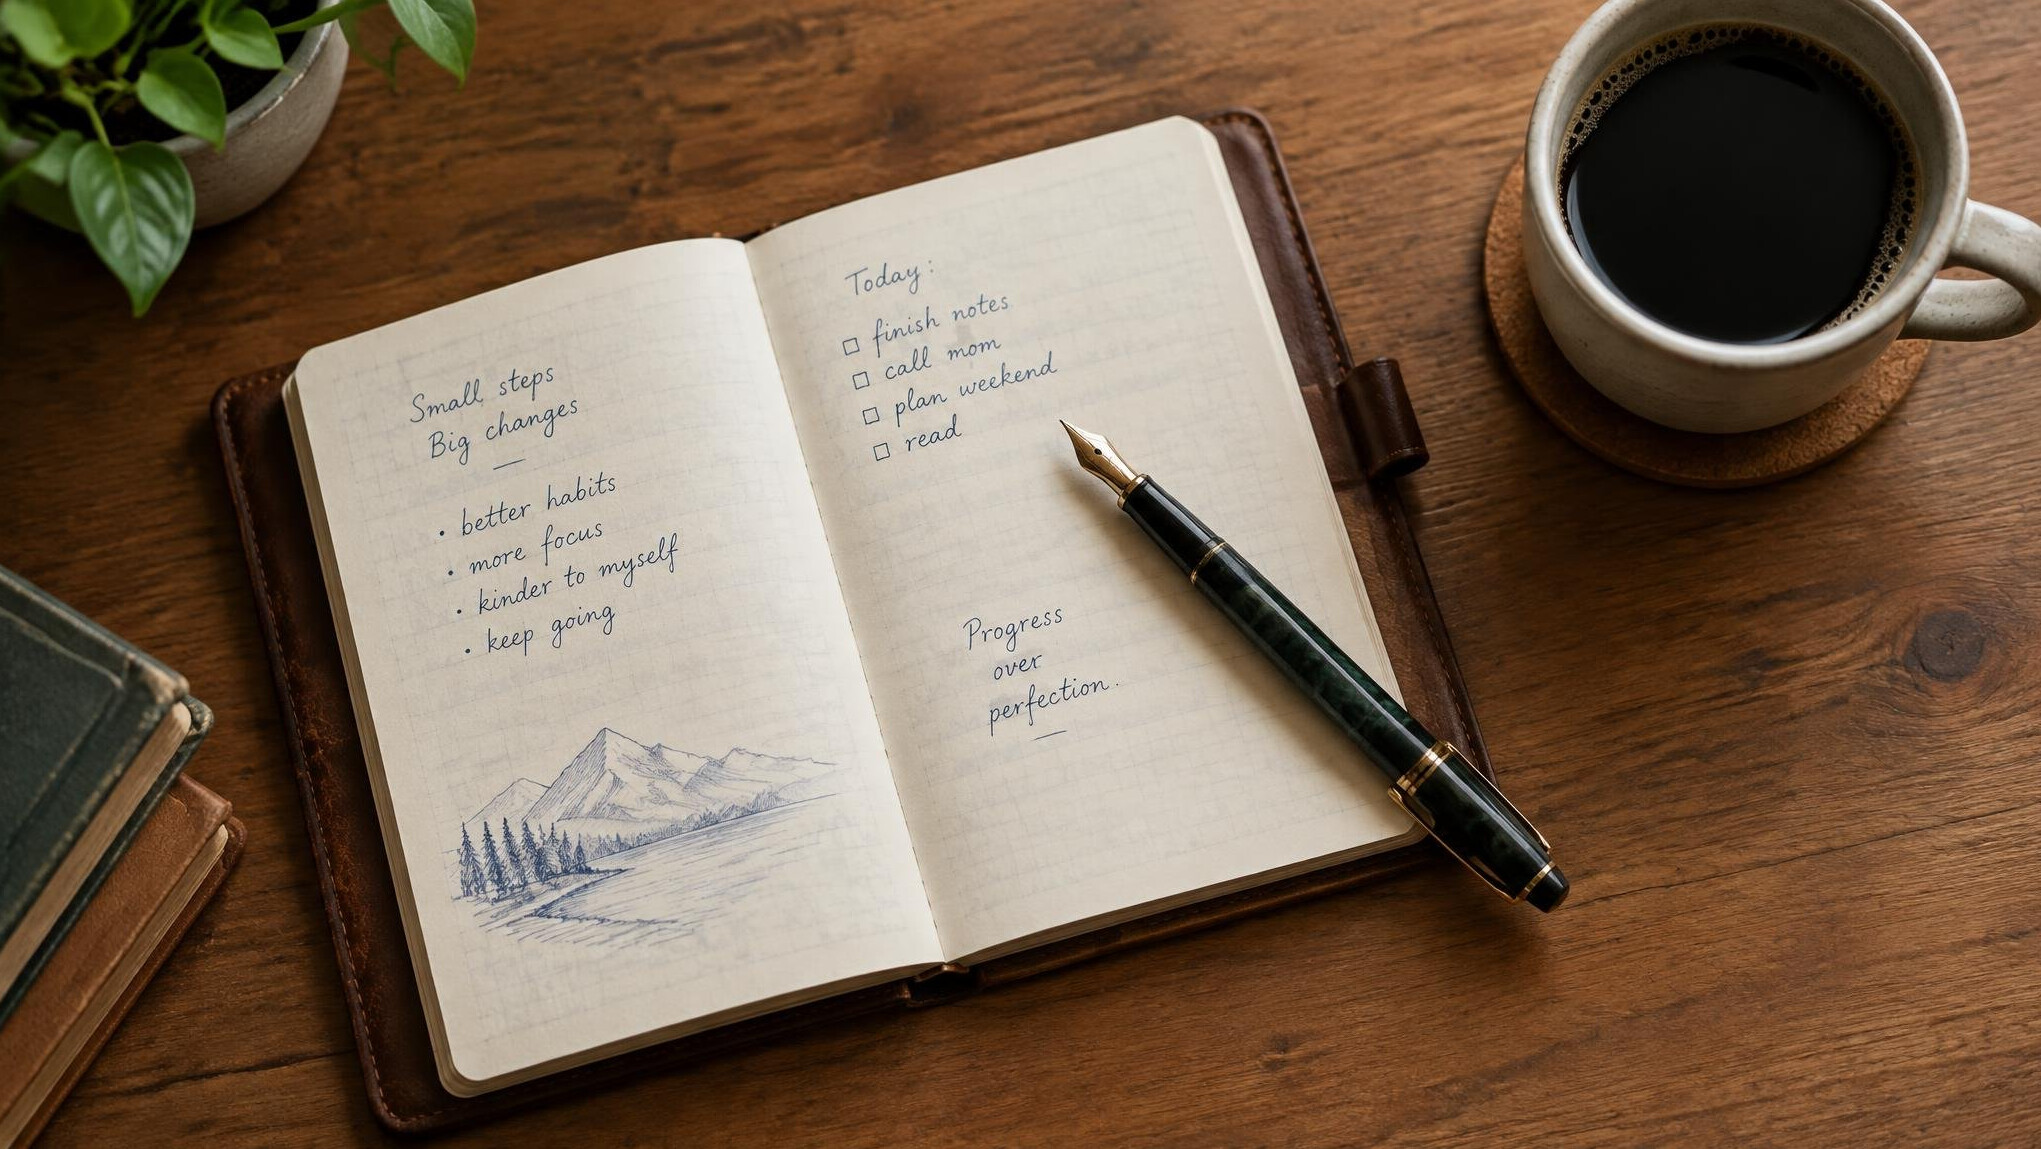 Small steps
Big changes
• better habits
• more focus
• kinder to myself
• keep going
Today:
☐ finish notes
☐ call mom
☐ plan weekend
☐ read
Progress
over
perfection.